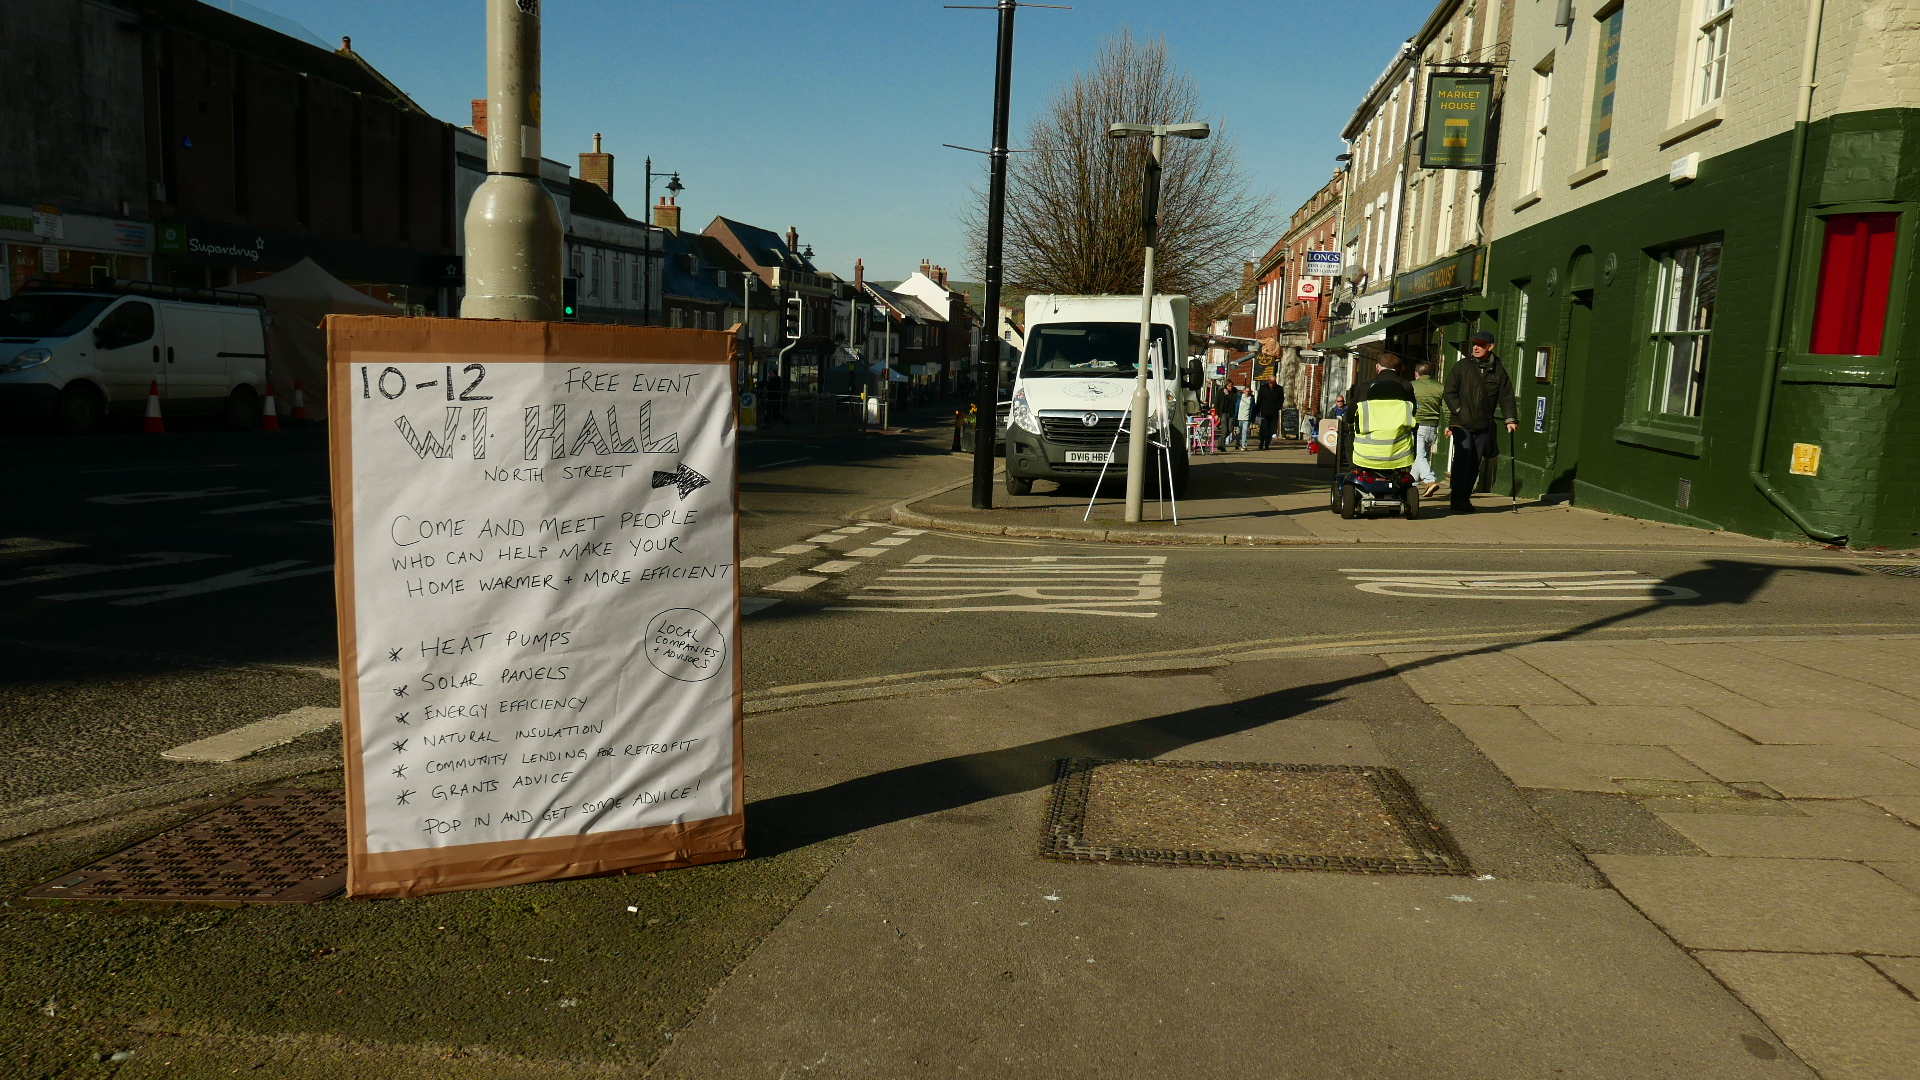 10-12 FREE EVENT
W.I. HALL
NORTH STREET
COME AND MEET PEOPLE
WHO CAN HELP MAKE YOUR
HOME WARMER + MORE EFFICIENT
LOCAL
COMPANIES
+ ADVISORS
* HEAT PUMPS
* SOLAR PANELS
* ENERGY EFFICIENCY
* NATURAL INSULATION
* COMMUNITY LENDING FOR RETROFIT
* GRANTS ADVICE
POP IN AND GET SOME ADVICE!
Superdrug
MARKET
HOUSE
LONGS
MARKET HOUSE
KEEP